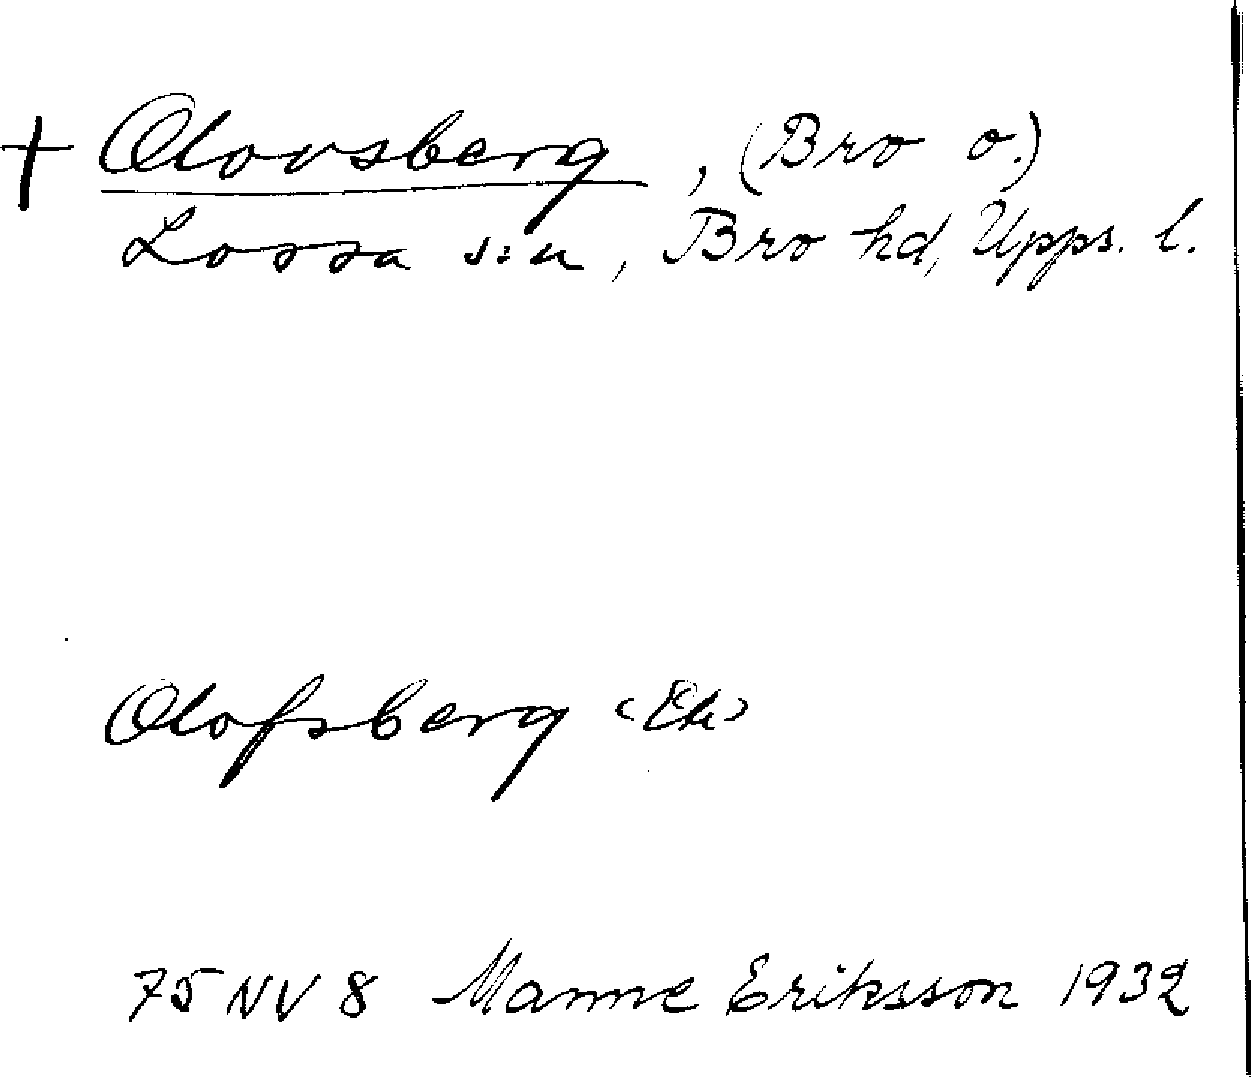 † Olovsberg, (Bro o.)
Lossa s:n, Bro hd, Upps. l.
Olofsberg (Ek)
75 NV 8 Manne Eriksson 1932